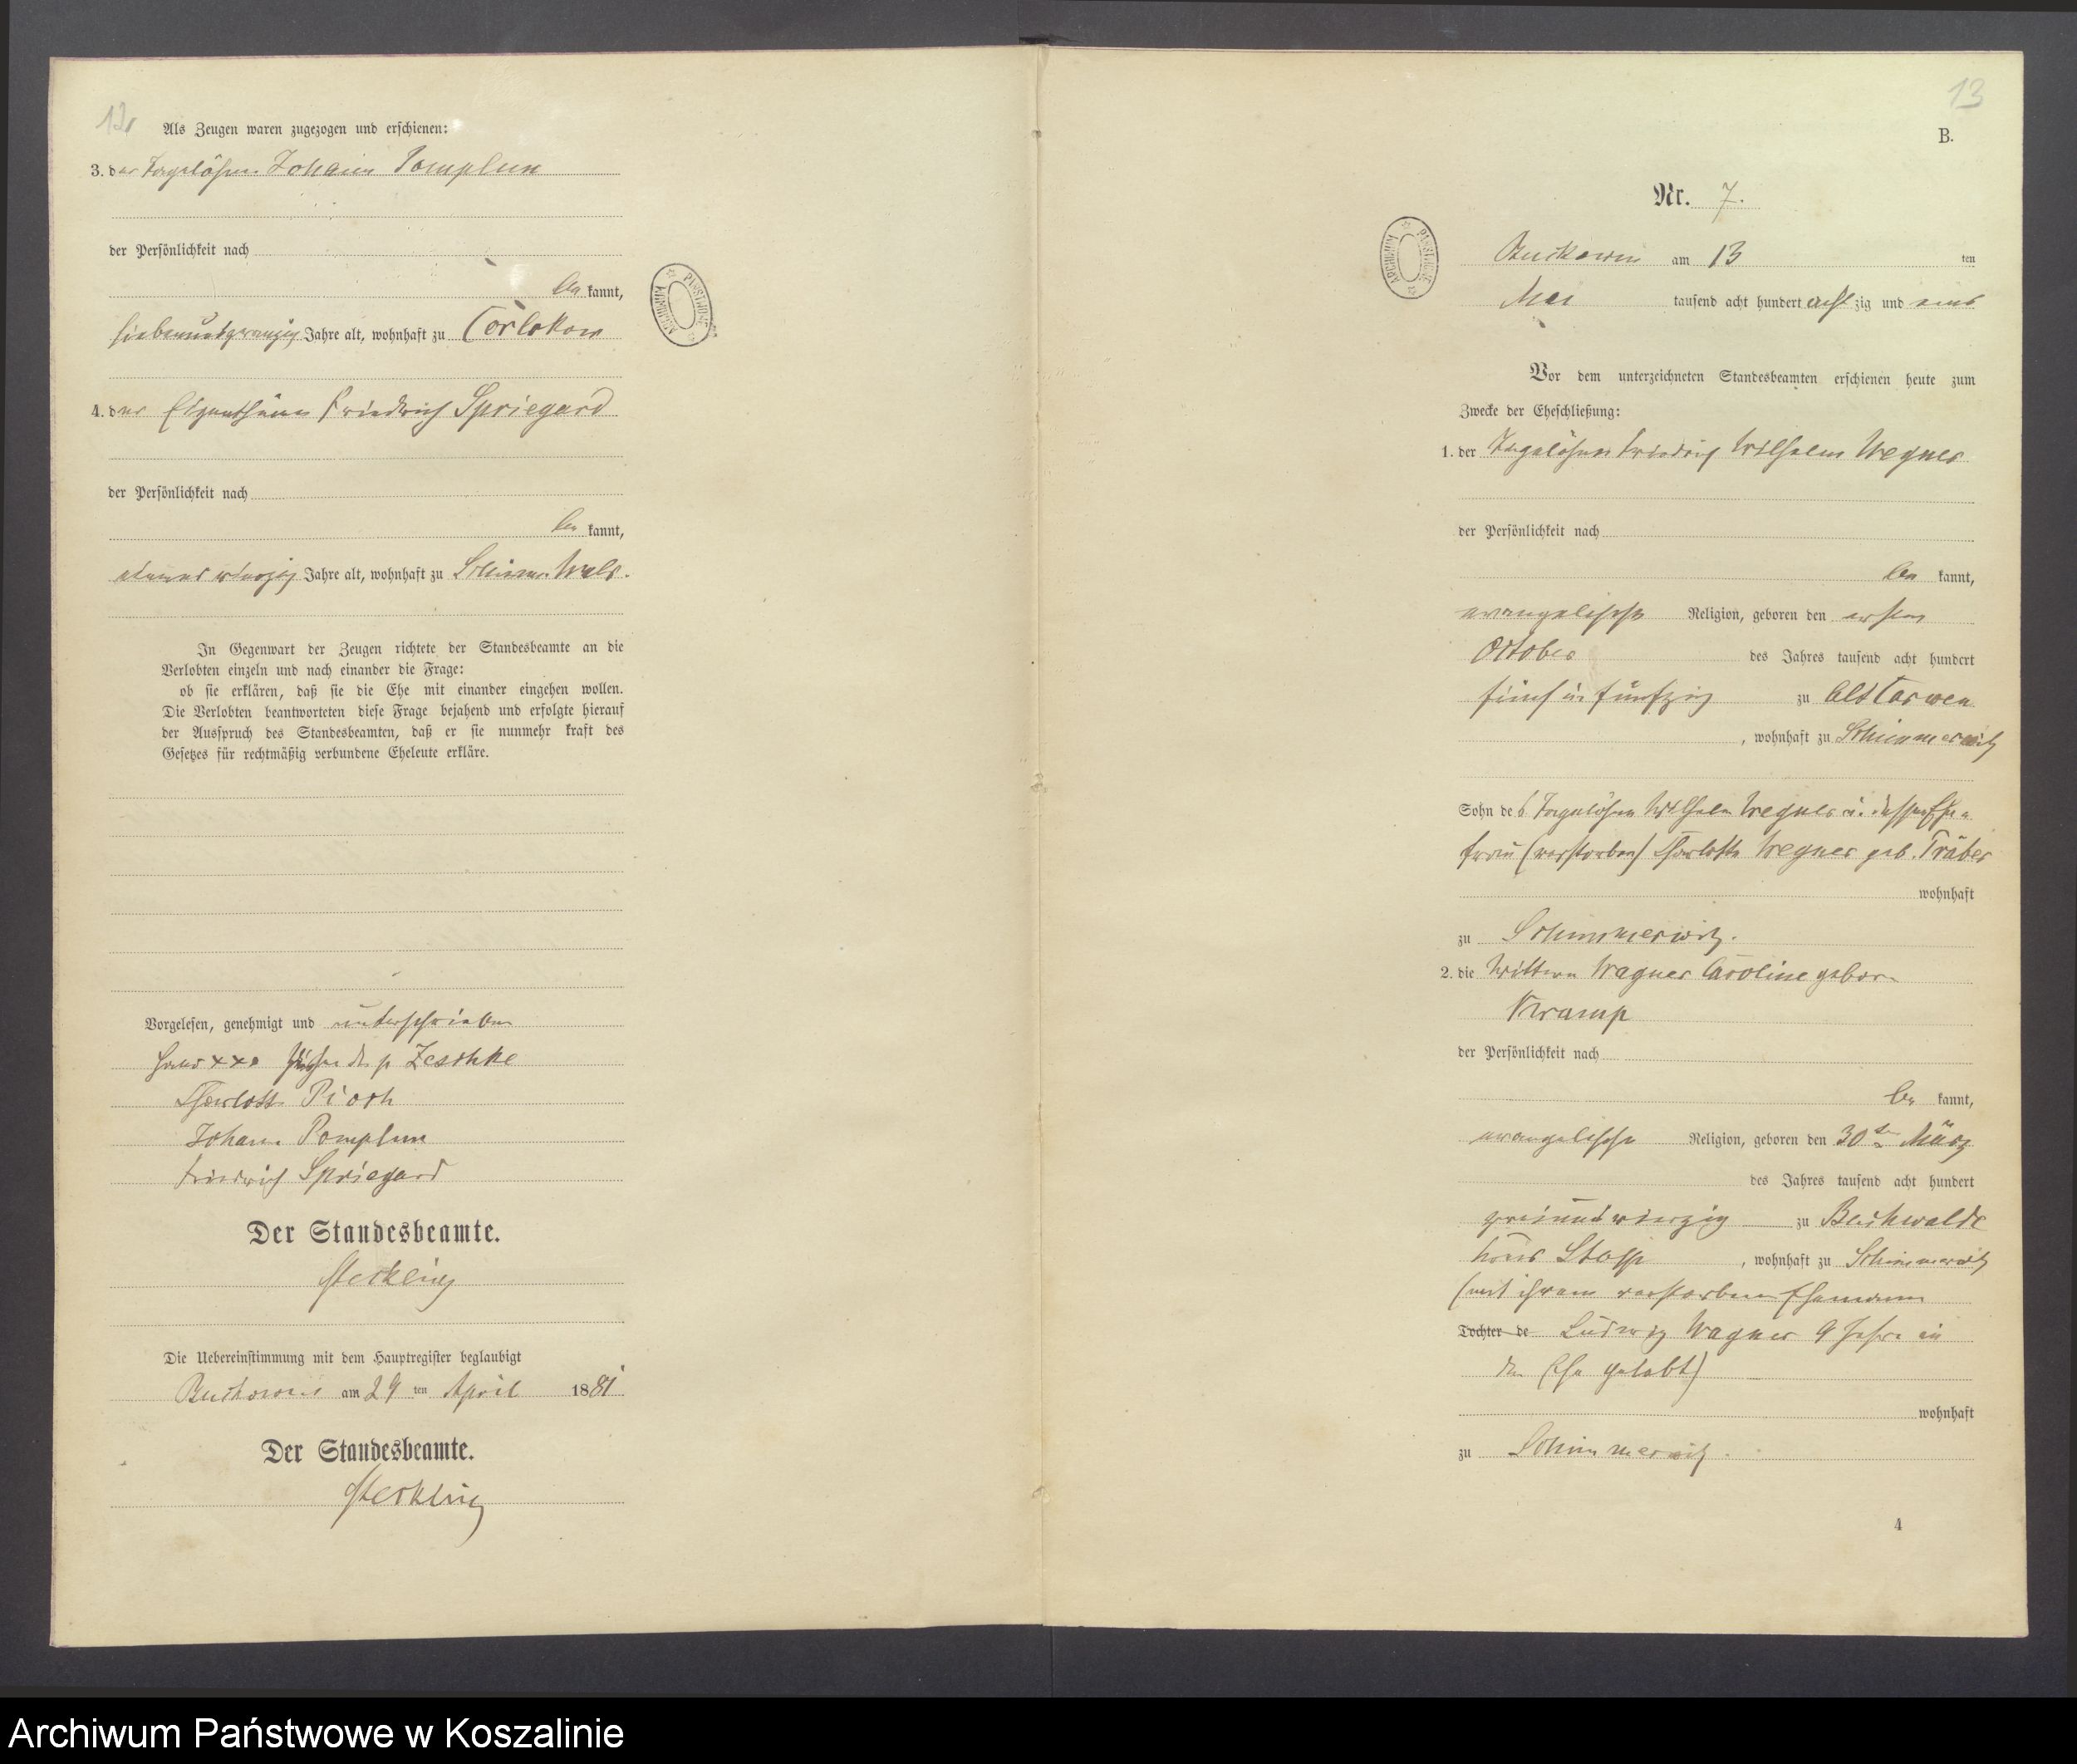 12
Als Zeugen waren zugezogen und erschienen:
3. der Tagelöhner Johann Pomplun
der Persönlichkeit nach
be kannt,
siebenundzwanzig Jahre alt, wohnhaft zu
4. der Eigenthümer Friedrich Spriegard
der Persönlichkeit nach
be kannt,
Jahre alt, wohnhaft zu
In Gegenwart der Zeugen richtete der Standesbeamte an die
Verlobten einzeln und nach einander die Frage:
ob sie erklären, daß sie die Ehe mit einander eingehen wollen.
Die Verlobten beantworteten diese Frage bejahend und erfolgte hierauf
der Ausspruch des Standesbeamten, daß er sie nunmehr kraft des
Gesetzes für rechtmäßig verbundene Eheleute erkläre.
Vorgelesen, genehmigt und unterschrieben
xxx Zeschke
Charlotte Pioch
Johann Pomplun
Friedrich Spriegard
Der Standesbeamte.
Steckling
Die Uebereinstimmung mit dem Hauptregister beglaubigt
Buckowin am 29 ten April 1881
Der Standesbeamte.
Steckling
ARCHIWUM PAŃSTWOWE
13
B.
Nr. 7.
ARCHIWUM PAŃSTWOWE
Buckowin am 13 ten
Mai tausend acht hundert acht zig und eins
Vor dem unterzeichneten Standesbeamten erschienen heute zum
Zwecke der Eheschließung:
1. der Tagelöhner Friedrich Wilhelm Wegner
der Persönlichkeit nach
be kannt,
evangelischer Religion, geboren den ersten
October des Jahres tausend acht hundert
fünf u. fünfzig zu
, wohnhaft zu Schimmerwitz
Sohn des Tagelöhner Wilhelm Wegner u. dessen Ehe-
frau (verstorben) Charlotte Wegner geb. Träber
wohnhaft
zu Schimmerwitz.
2. die Wittwe Wagner Caroline geborn
Kramp
der Persönlichkeit nach
be kannt,
evangelischer Religion, geboren den 30ten März
des Jahres tausend acht hundert
zu Buchwalde
, wohnhaft zu Schimmerwitz
(mit ihrem verstorbenen Ehemann
Tochter de Ludwig Wagner 9 Jahre in
der Ehe gelebt)
wohnhaft
zu Schimmerwitz.
4
Archiwum Państwowe w Koszalinie